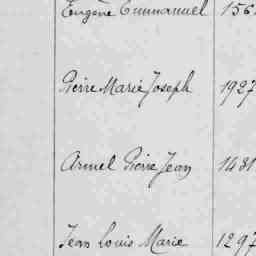 Eugène Emmanuel 156
Pierre Marie Joseph 1927
Armel Pierre Jean 1481
Jean Louis Marie 1297